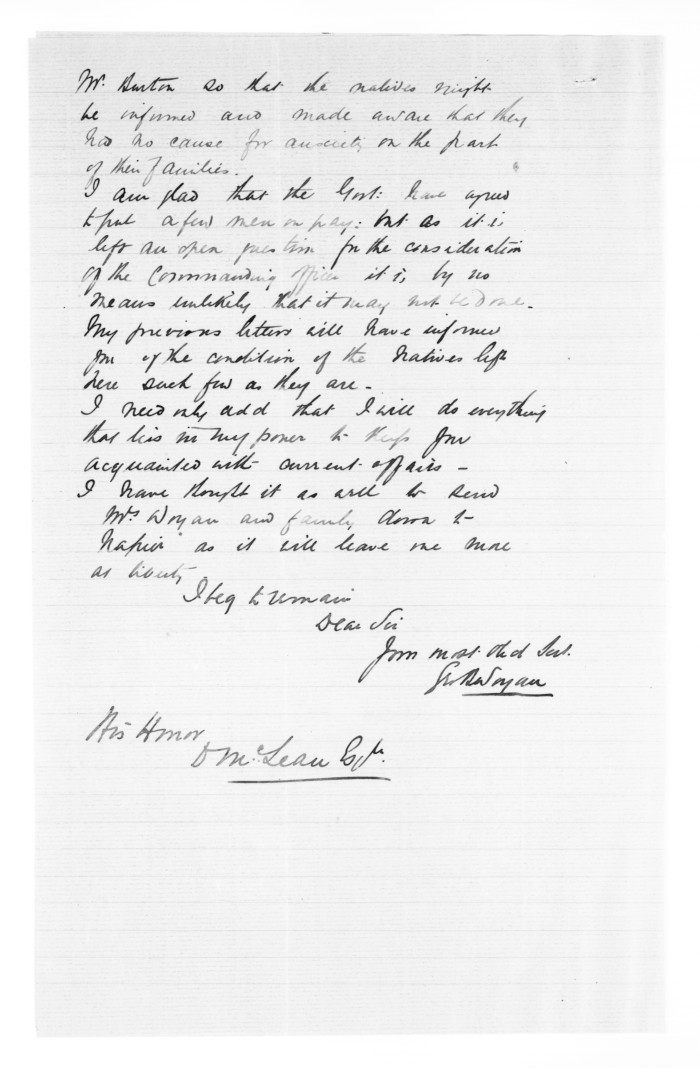 Mr. Burton so that the natives might
be informed and made aware that they
had no cause for anxiety on the part
of their families.
I am glad that the Govt: have agreed
to put a few men on pay: but as it is
left an open question for the consideration
of the Commanding officer it is by no
means unlikely that it may not be done.
My previous letters will have informed
you of the condition of the Natives left
here such few as they are -
I need only add that I will do everything
that lies in my power to keep you
acquainted with current affairs -
I have thought it as well to send
Mrs Woyan and family down to
Napier as it will leave me more
at liberty
I beg to remain
Dear Sir
Your most Obd Svt.
Geo B Woyan
His Honor
D McLean Esqr.